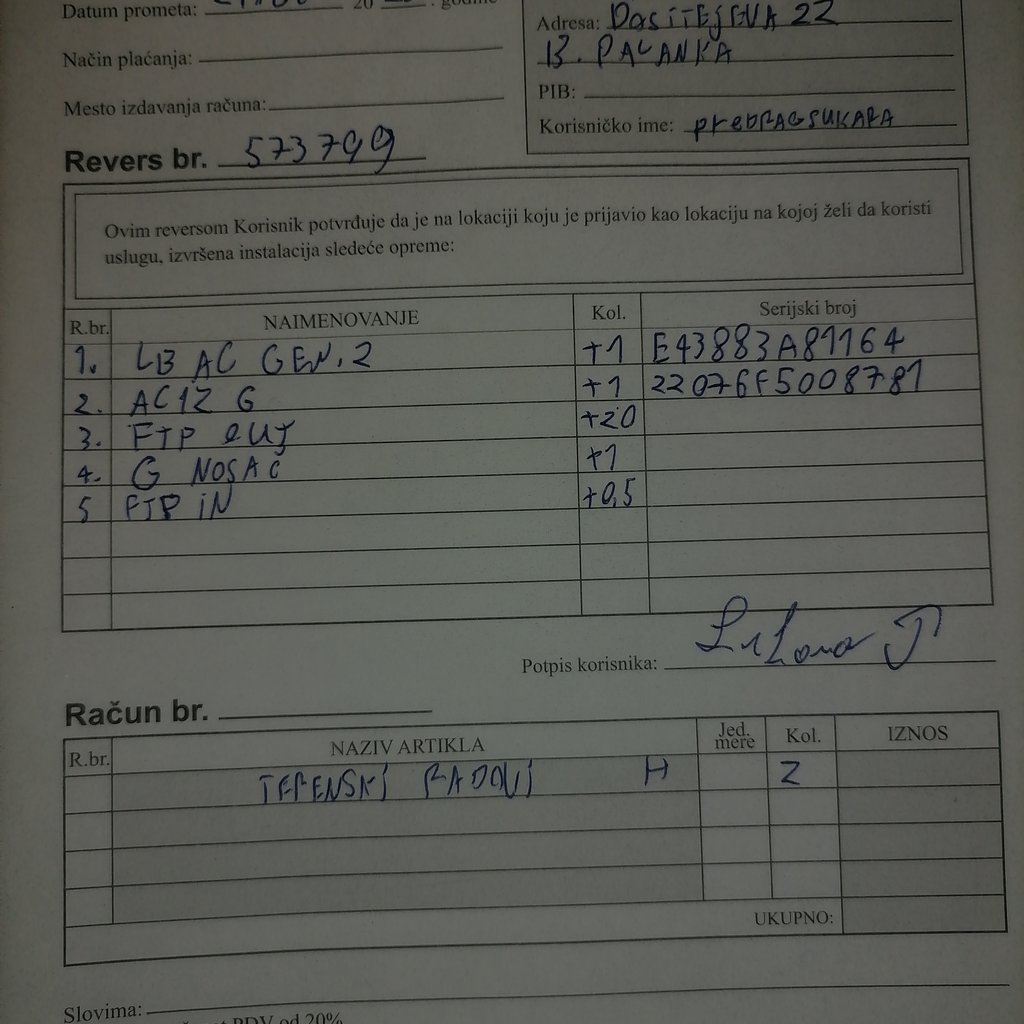 Datum prometa: 20 . godine
Adresa: DOSITEJEVA 22
B. PALANKA
Način plaćanja:
PIB:
Mesto izdavanja računa:
Korisničko ime: preDRAGSUKARA
Revers br. 573799
Ovim reversom Korisnik potvrđuje da je na lokaciji koju je prijavio kao lokaciju na kojoj želi da koristi
uslugu, izvršena instalacija sledeće opreme:
R.br. NAIMENOVANJE Kol. Serijski broj
1. LB AC GEN.2 +1 E43883A81164
2. AC12 G +1 22076F5008781
3. FTP OUT +20
4. G NOSAČ +1
5 FTP IN +0,5
Potpis korisnika:
Račun br.
R.br. NAZIV ARTIKLA Jed. mere Kol. IZNOS
TERENSKI RADOVI H 2
UKUPNO:
Slovima:
PDV od 20%